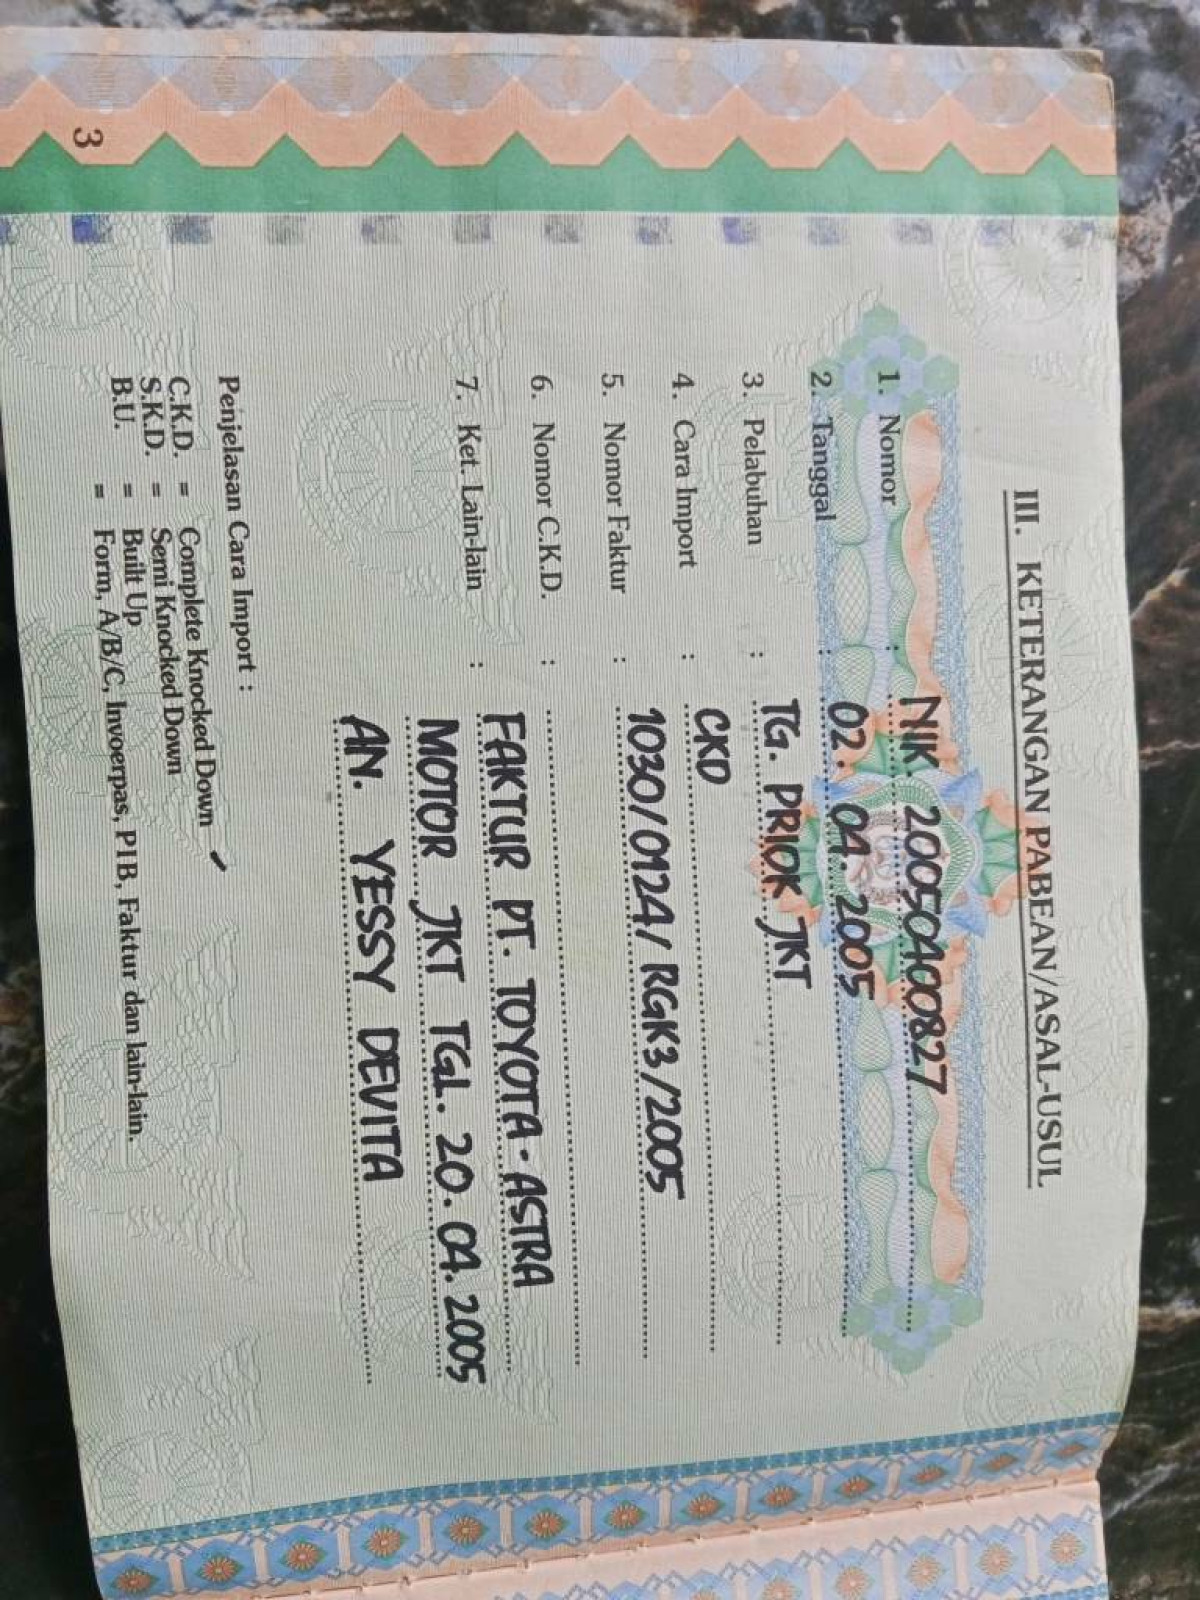 III. KETERANGAN PABEAN/ASAL-USUL
1. Nomor : NIK. 200504400827
2. Tanggal : 02. 04. 2005
3. Pelabuhan : TG. PRIOK JKT
4. Cara Import : CKD
5. Nomor Faktur : 1030/0124/RGK3/2005
6. Nomor C.K.D. :
7. Ket. Lain-lain : FAKTUR PT. TOYOTA-ASTRA
MOTOR JKT TGL. 20. 04. 2005
AN. YESSY DEVITA
Penjelasan Cara Import :
C.K.D. = Complete Knocked Down
S.K.D. = Semi Knocked Down
B.U. = Built Up
= Form, A/B/C, Invoerpas, PIB, Faktur dan lain-lain.
3